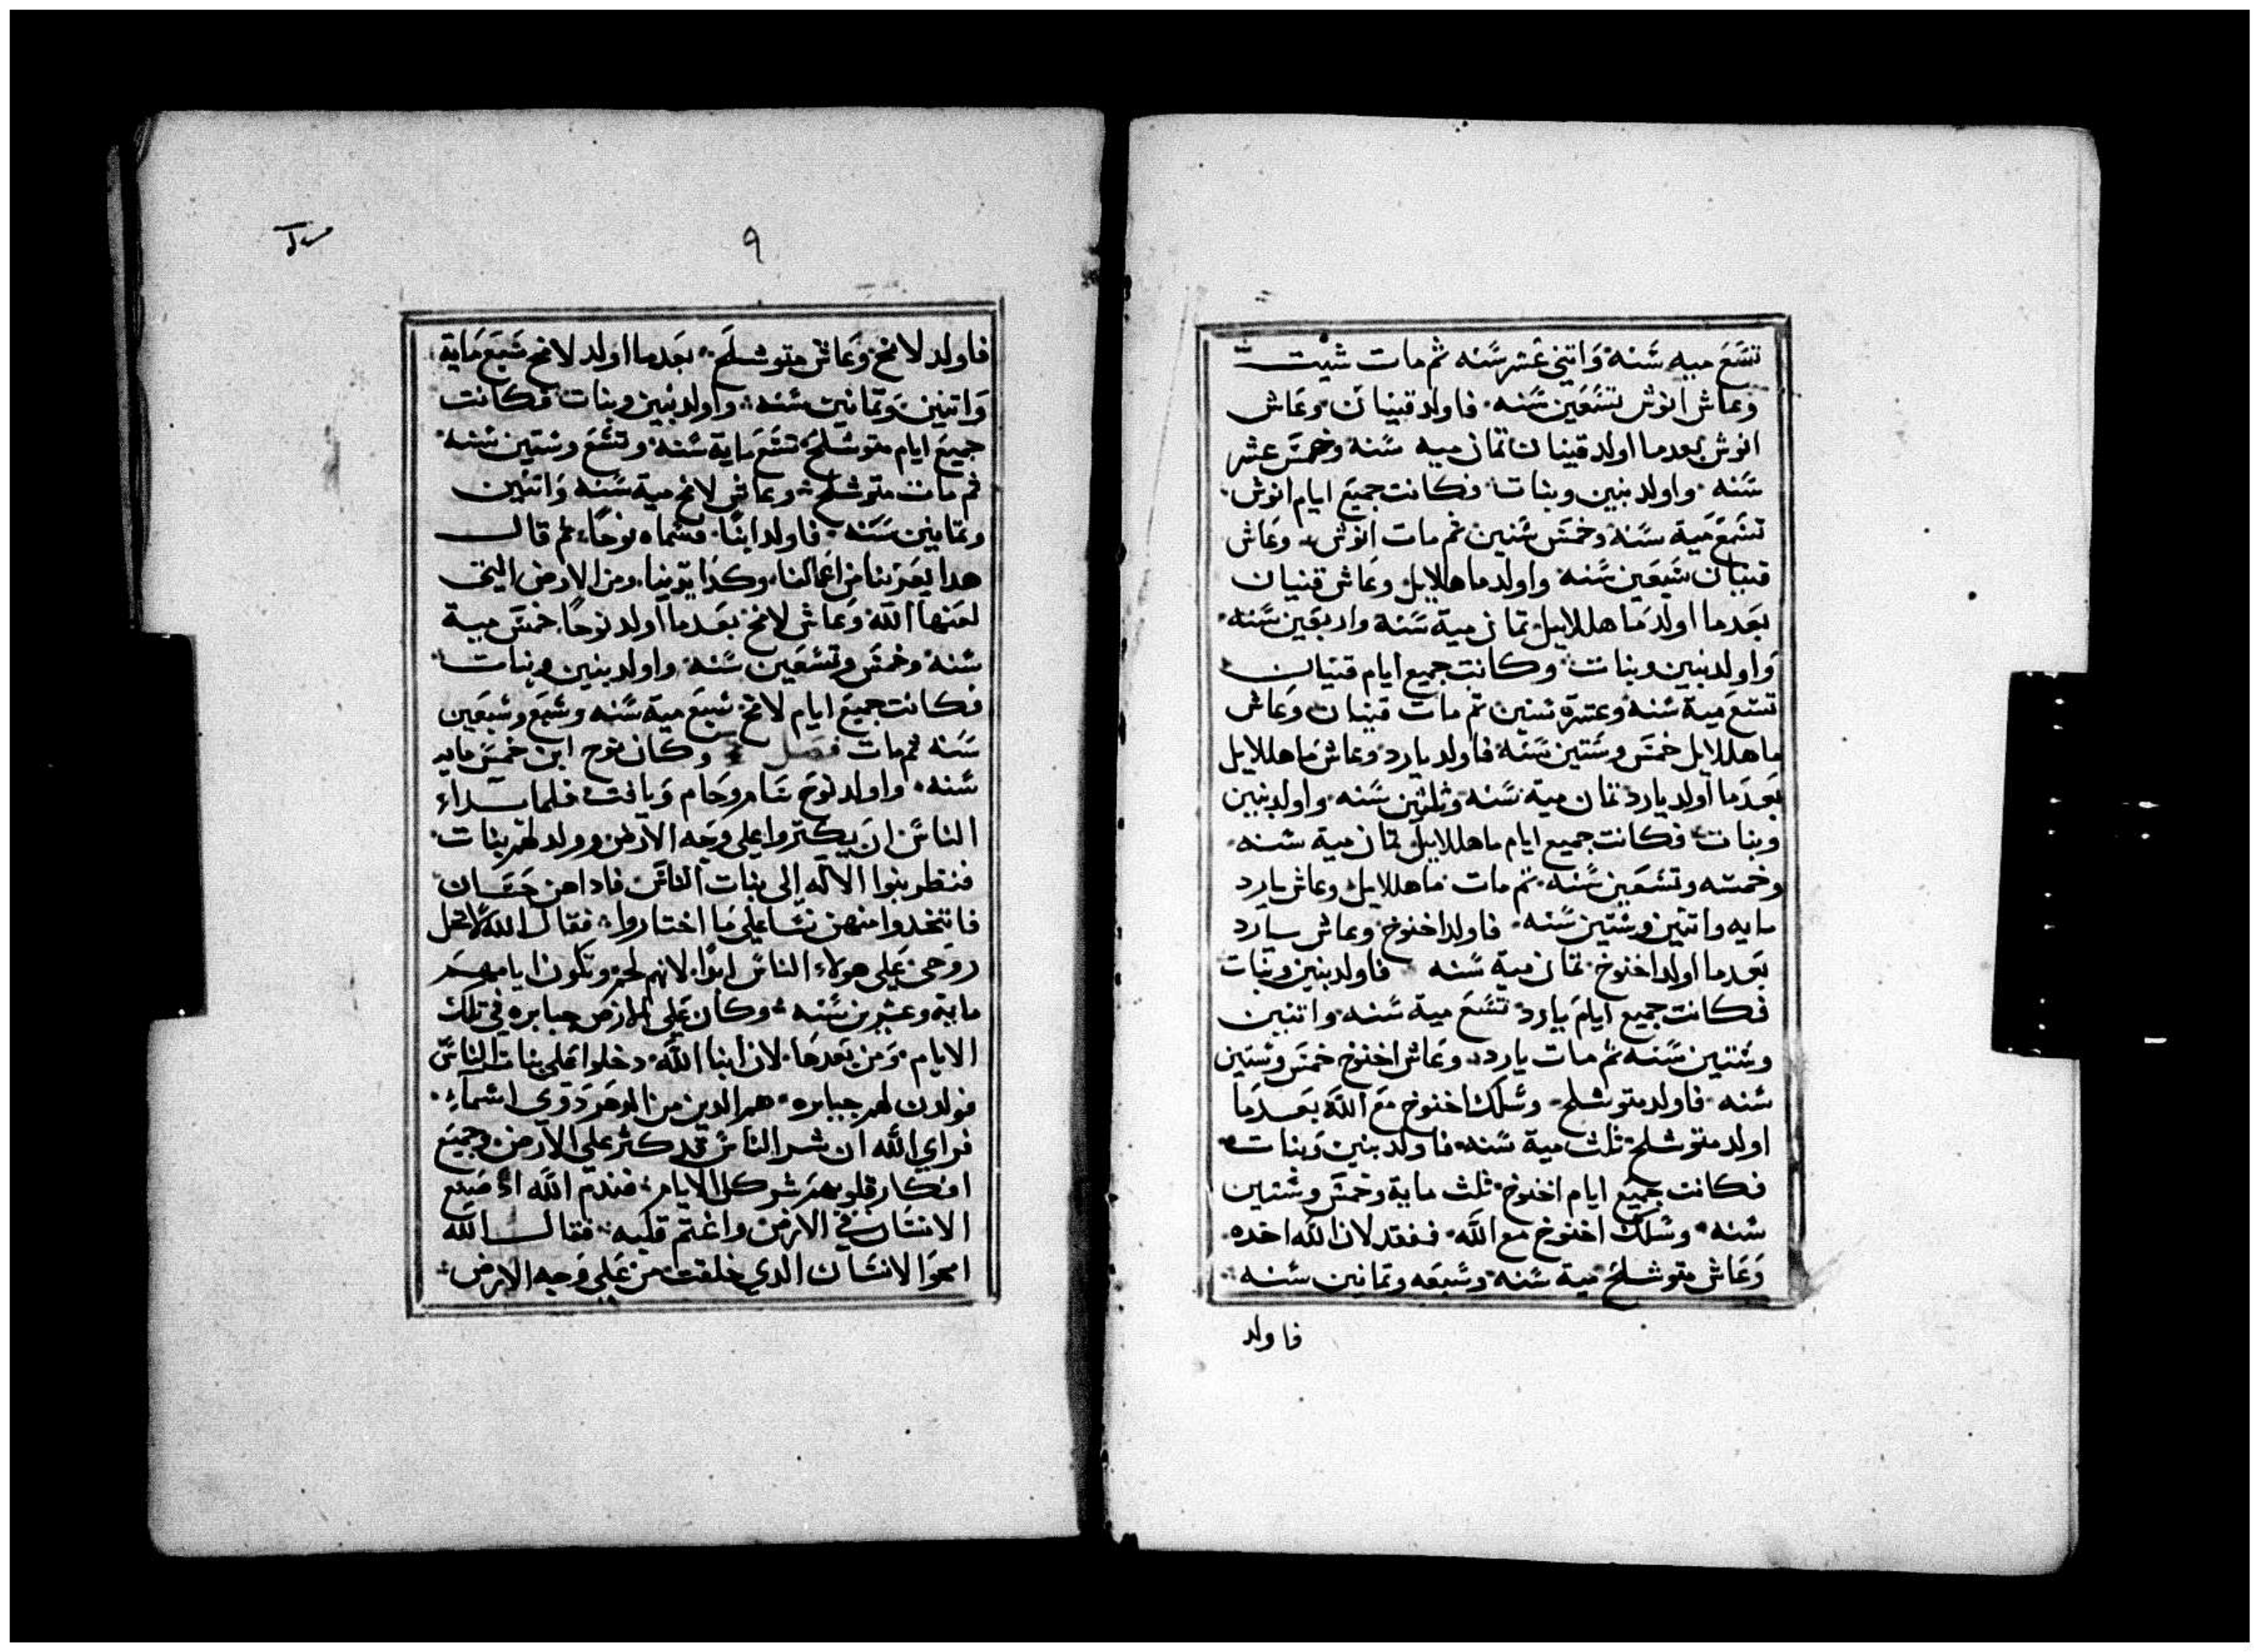 تسع ميه سنه واتني عشر سنه ثم مات شيت
وعاش انوش تسعين سنه فاولد قينان وعاش
انوش بعدما اولد قينان تمان ميه سنه وخمس عشر
سنه واولد بنين وبنات فكانت جميع ايام انوش
تسع مية سنه وخمس سنين ثم مات انوش وعاش
قينان سبعين سنه واولد ماهلالايل وعاش قنيان
بعدما اولد ماهللاييل تمان مية سنة واربعين سنه
واولد بنين وبنات وكانت جميع ايام قنيان
تسع مية سنه وعشره سنين تم مات قينان وعاش
ماهللايل خمس وستين سنه فاولد يارد وعاش ماهللايل
بعدما اولد يارد تمان مية سنه وثلثين سنه واولد بنين
وبنات فكانت جميع ايام ماهللاييل تمان مية سنه
وخمسه وتسعين سنه تم مات ماهللايل وعاش يارد
مايه واتنين وستين سنه فاولد اخنوخ وعاش يارد
بعدما اولد اخنوخ تمان مية سنه فاولد بنين وبنات
فكانت جميع ايام يارد تسع مية سنه واتنين
وستين سنه تم مات يارد وعاش اخنوخ خمس وستين
سنه فاولد متوشلح وسلك اخنوخ مع الله بعدما
اولد متوشلح ثلث مية سنه فاولد بنين وبنات
فكانت جميع ايام اخنوخ ثلث ماية وخمس وستين
سنه وسلك اخنوخ مع الله ففقد لان الله اخده
وعاش متوشلح مية سنه وسبعه وتمانين سنه
فاولد
٩
فاولد لامخ وعاش متوشلح بعدما اولد لامخ سبع ماية
واتنين وتمانين سنه واولد بنين وبنات فكانت
جميع ايام متوشلح تسع ماية سنه وتسع وستين سنه
ثم مات متوشلح وعاش لامخ مية سنه واتنين
وتمانين سنه فاولد ابنا فسماه نوحا ثم قال
هدا يعزينا من اعمالنا وكدا يدينا ومن الارض التي
لعنها الله وعاش لامخ بعدما اولد نوحا خمس مية
سنه وخمس وتسعين سنه واولد بنين وبنات
فكانت جميع ايام لامخ سبع مية سنه وسبع وسبعين
سنه ثم مات فصل وكان نوح ابن خمس مايه
سنه واولد نوح سام وحام ويافت فلما بداء
الناس ان يكتروا على وجه الارض وولد لهم بنات
فنظر بنوا الاله الى بنات الناس فاداهن حسان
فاتخدوا منهن نسا على ما اختاروا فقال الله لا تحل
روحي على هولاء الناس ابدا لانهم لحم وتكون ايامهم
ماية وعشرين سنه وكان على الارض جبابره في تلك
الايام ومن بعدها لان ابنا الله دخلوا على بنات الناس
فولدن لهم جبابره هم الدين من الدهر دوي اسماء
فراي الله ان شر الناس قد كثر على الارض وجميع
افكار قلوبهم شر كل الايام فندم الله اد صنع
الانسان في الارض واغتم قلبه فقال الله
امحو الانسان الدي خلقت من على وجه الارض